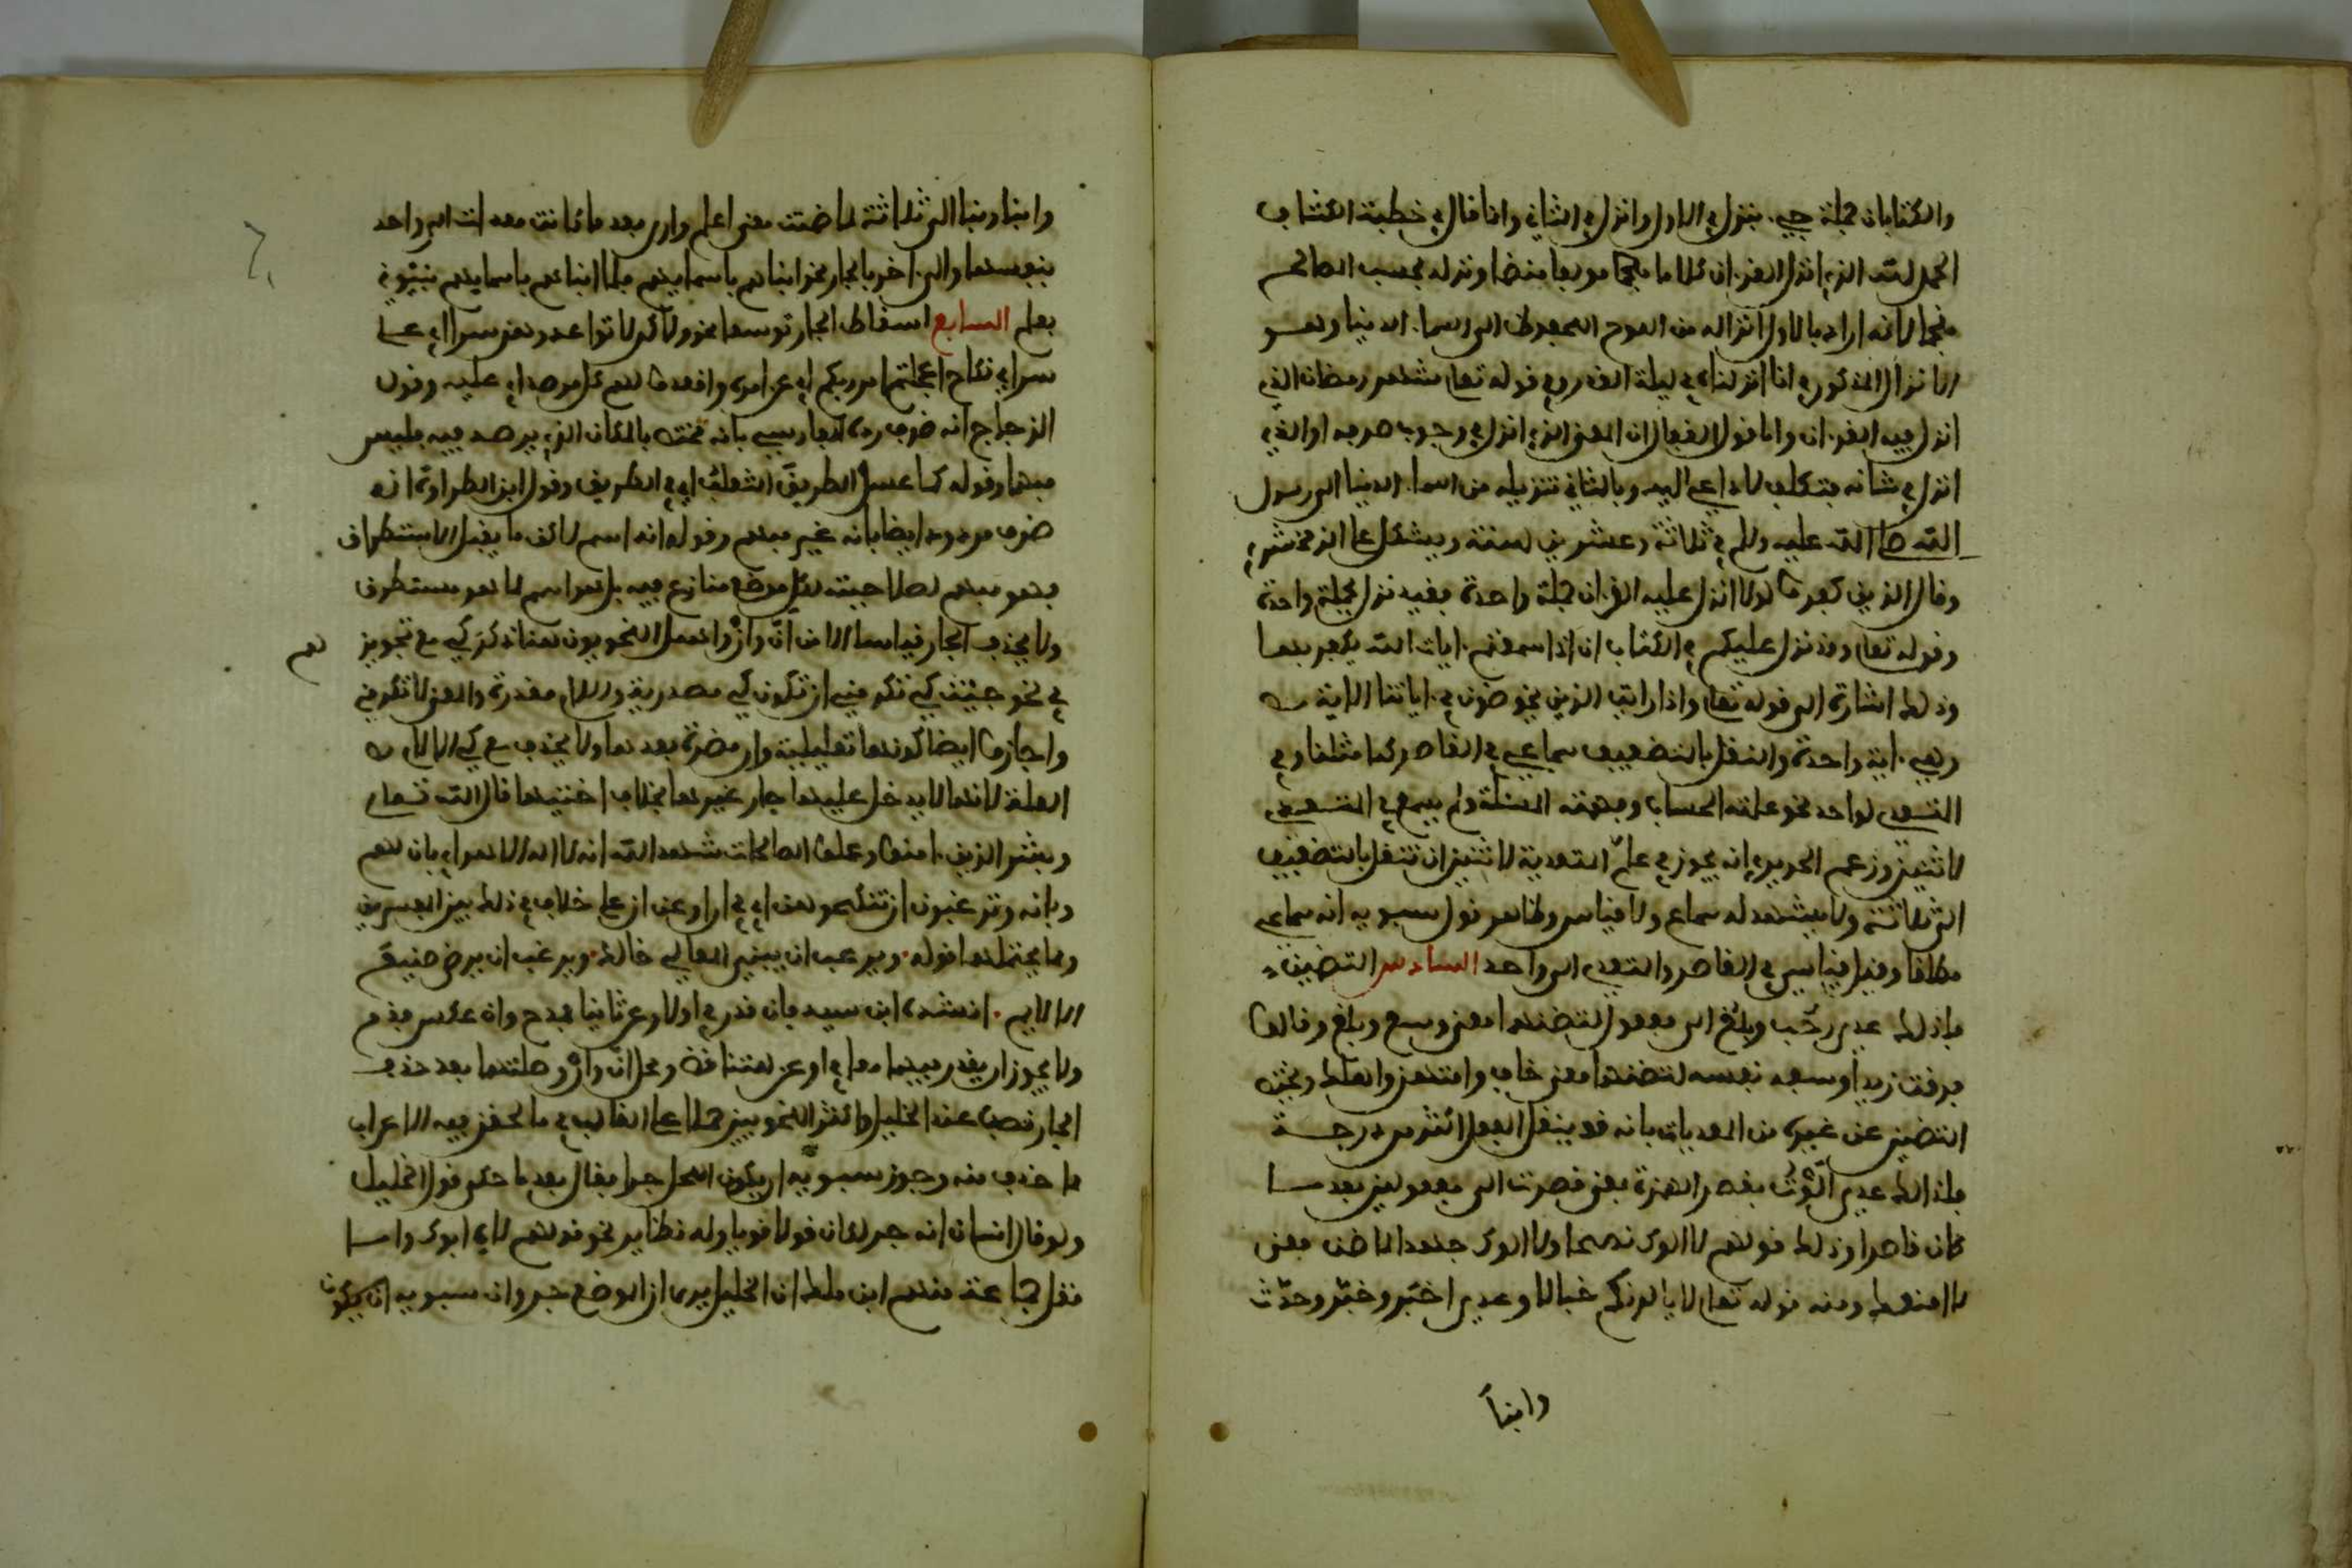 والكتابان جملة جيء بنزل في الاول وانزل في الثاني وانما قال في خطبة الكشاف
الحمد لله الذي انزل القرءان كلاما مؤلفا منظما ونزله بحسب المصالح
منجما لانه اراد بالاول انزاله من اللوح المحفوظ الى السماء الدنيا وهو
الانزال المذكور في انا انزلناه في ليلة القدر وفي قوله تعلى شهر رمضان الذي
انزل فيه القرءان واما قول القفال ان المعنى الذي انزل في وجوب صومه او الذي
انزل في شانه فتكلف لا داعي اليه وبالثاني تنزيله من السماء الدنيا الى رسول
الله صلى الله عليه وسلم في ثلاثة وعشرين سنة ويشكل على الزمخشري
وقال الذين كفروا لولا انزل عليه القرءان جملة واحدة فقيد نزل بجملة واحدة
وقوله تعلى وقد نزل عليكم في الكتاب ان اذا سمعتم ءايات الله يكفر بها
وذلك اشارة الى قوله تعلى واذا رايت الذين يخوضون في ءاياتنا الاية
وهي ءاية واحدة والنقل بالتضعيف سماعي في القاصر كما مثلنا وفي
المتعدي لواحد نحو علمته الحساب وفهمته المسئلة ولم يسمع في المتعدي
لاثنين وزعم الحريري انه يجوز في علم المتعدية لاثنين ان تنقل بالتضعيف
الى ثلاثة ولا يشهد له سماع ولا قياس وظاهر قول سيبويه انه سماعي
مطلقا وقيل قياسي في القاصر والمتعدي الى واحد السادس التضمين
فلذلك عدي رحب وبلغ الى مفعول لتضمنها معنى وسع وبلغ وقالوا
فرقت زيدا وسفه نفسه لتضمنهما معنى خاف وامتهن واهلك ويختص
التضمين عن غيره من المعديات بانه قد ينقل الفعل اكثر من درجة
فلذلك عدي الوت بقصر الهمزة بمعنى قصرت الى مفعولين بعد ما
كان قاصرا وذلك قولهم لا الوك نصحا ولا الوك جهدا لما ضمن معنى
لا امنعك ومنه قوله تعلى لا يالونكم خبالا وعدي اخبر وخبر وحدث
وانبا
وانبا ونبا الى ثلاثة لما ضمنت معنى اعلم وارى بعد ما كانت معدات الى واحد
بنفسها والى ءاخر بالجار نحو انبئهم باسمائهم فلما انباهم باسمائهم نبئوني
بعلم السابع اسقاط الجار توسعا نحو ولكن لا تواعدوهن سرا اي على
سر اي نكاح اعجلتم امر ربكم اي عن امره واقعدوا لهم كل مرصد اي عليه وقول
الزجاج انه ظرف رده الفارسي بانه مختص بالمكان الذي يرصد فيه فليس
مبهما وقوله كما عسل الطريق الثعلب اي في الطريق وقول ابن الطراوة انه
ظرف مردود ايضا بانه غير مبهم وقوله انه اسم لكل ما يقبل الاستطراق
فهو مبهم لصلاحيته لكل موضع منازع فيه بل هو اسم لما هو مستطرق
ولا يحذف الجار قياسا الا من ان وان واهمل النحويون هنا ذكر كي مع تجويزهم
في نحو جئت كي تكرمني ان تكون كي مصدرية واللام مقدرة والمعنى لتكرمني
واجازوا ايضا كونها تعليلية وان مضمرة بعدها ولا يحذف مع كي الا لام
العلة لانها لا يدخل عليها جار غيرها بخلاف اختيها قال الله تعلى
وبشر الذين ءامنوا وعملوا الصالحات شهد الله انه لا اله الا هو اي بان لهم
وبانه وترغبون ان تنكحوهن اي في ان او عن ان على خلاف في ذلك بين المفسرين
ومما يحتملها قوله ويرغب ان يبني المعالي خالد ويرغب ان يرضى صنيع
الالايم انشده ابن سيد فان قدر في اولا وعن ثانيا فمدح وان عكس فذم
ولا يجوز ان يقدر فيهما معا في او عن لتناقضه ومحل ان وان وصلتهما بعد حذف
الجار نصب عند الخليل واكثر النحويين حملا على الغالب في ما ظهر فيه الاعراب
مما حذف منه وجوز سيبويه ان يكون المحل جرا فقال بعد ما حكى قول الخليل
ولو قال انسان انه جر لكان قولا قويا وله نظاير نحو قولهم لاه ابوك واما
نقل جماعة منهم ابن ملك ان الخليل يرى ان الموضع جر وان سيبويه ان يكون